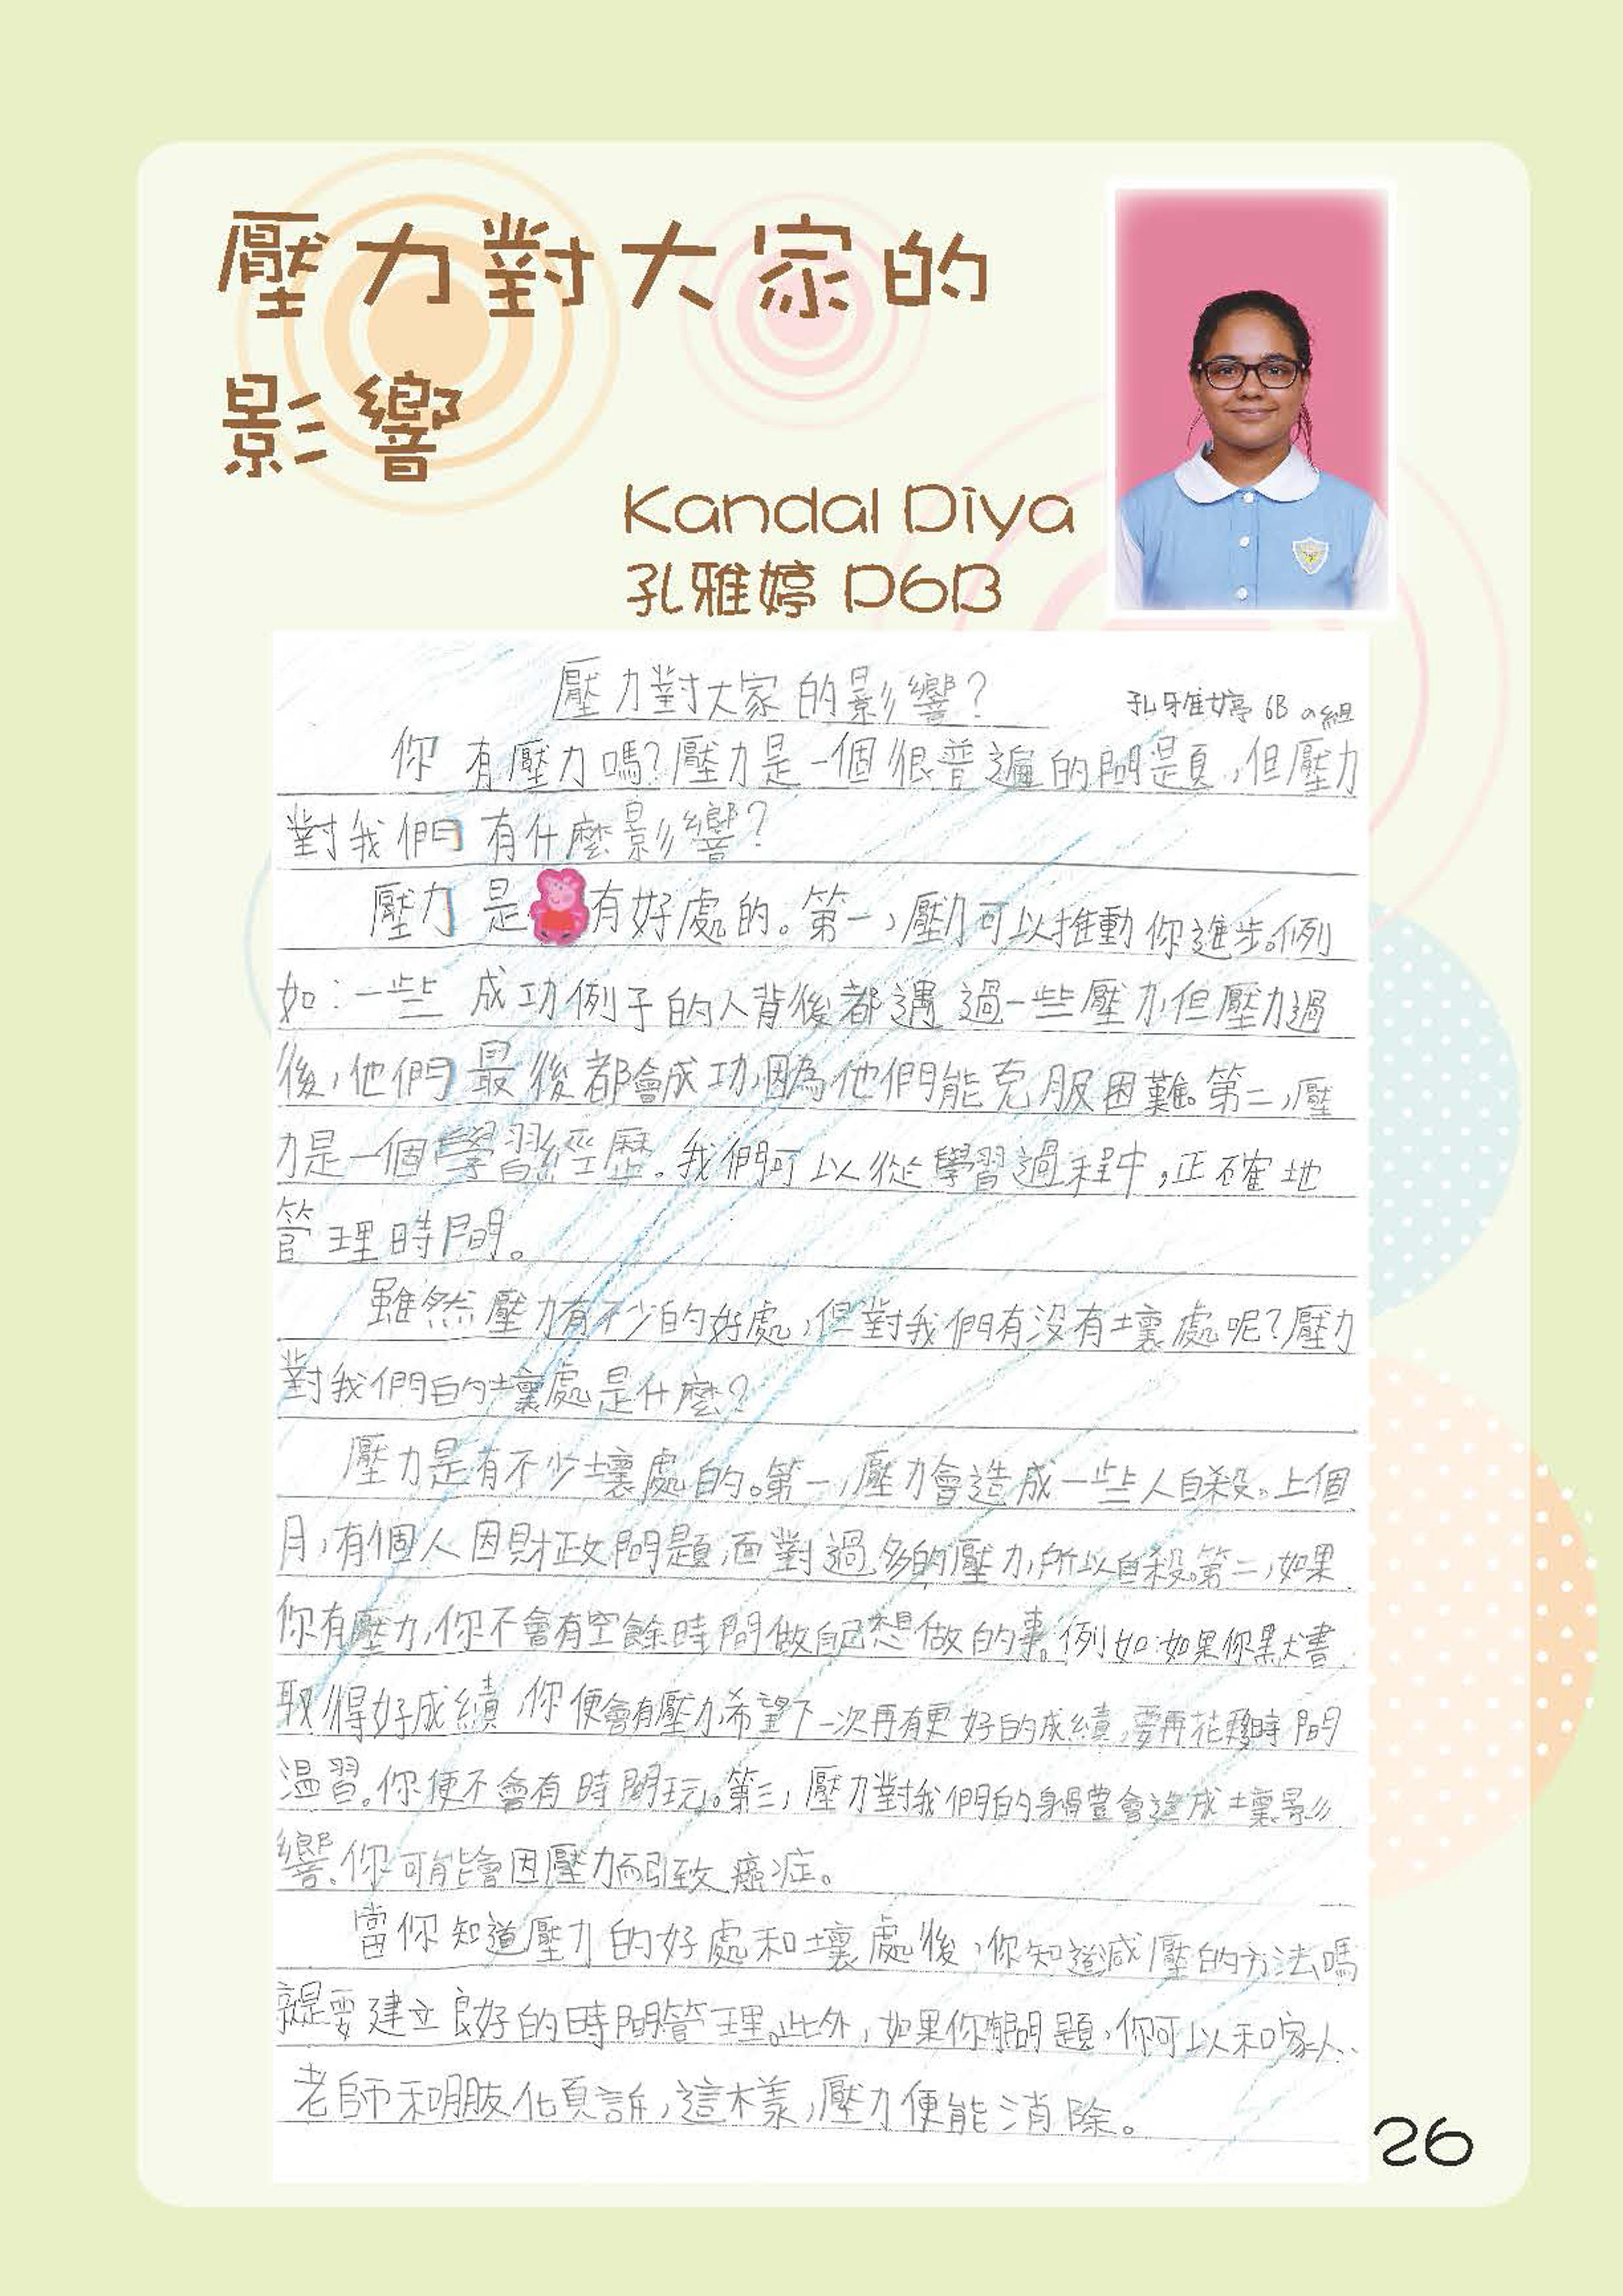 壓力對大家的
影響
Kandal Diya
孔雅婷 P6B
壓力對大家的影響?
孔雅婷 6B a組
你有壓力嗎?壓力是一個很普遍的問題,但壓力
對我們有什麼影響?
壓力是有好處的。第一,壓力可以推動你進步。例
如:一些成功例子的人背後都遇過一些壓力,但壓力過
後,他們最後都會成功,因為他們能克服困難。第二,壓
力是一個學習經歷。我們可以從學習過程中,正確地
管理時間。
雖然壓力有不少的好處,但對我們有沒有壞處呢?壓力
對我們的壞處是什麼?
壓力是有不少壞處的。第一,壓力會造成一些人自殺。上個
月,有個人因財政問題,面對過多的壓力,所以自殺。第二,如果
你有壓力,你不會有空餘時間做自己想做的事。例如:如果你默書
取得好成績,你便會有壓力,希望下一次再有更好的成績,要再花時間
溫習。你便不會有時間玩。第三,壓力對我們的身體會造成壞影
響。你可能會因壓力而引致癌症。
當你知道壓力的好處和壞處後,你知道減壓的方法嗎
就是要建立良好的時間管理。此外,如果你有問題,你可以和家人、
老師和朋友傾訴,這樣,壓力便能消除。
26